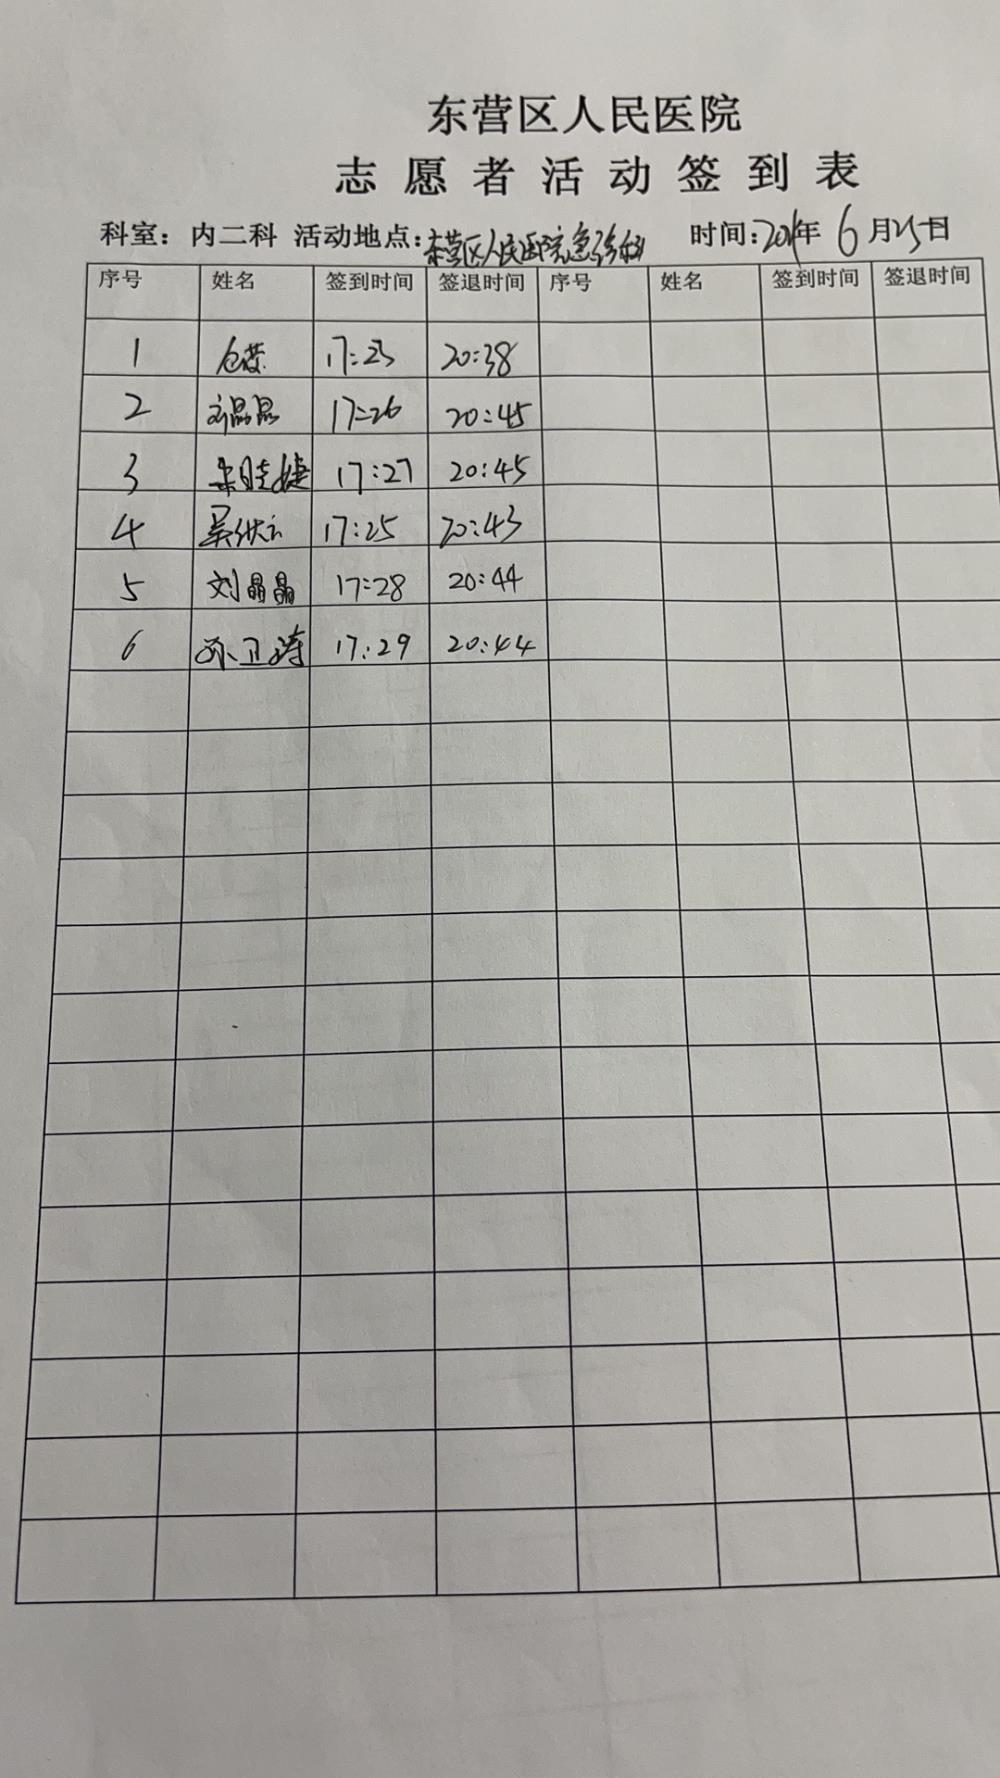 东营区人民医院
志愿者活动签到表
科室：内二科 活动地点：东营区人民医院急诊科 时间：年 6月25日
序号 姓名 签到时间 签退时间 序号 姓名 签到时间 签退时间
1 17:23 20:38
2 刘晶晶 17:26 20:45
3 17:27 20:45
4 17:25 20:43
5 刘晶晶 17:28 20:44
6 孙卫涛 17:29 20:44